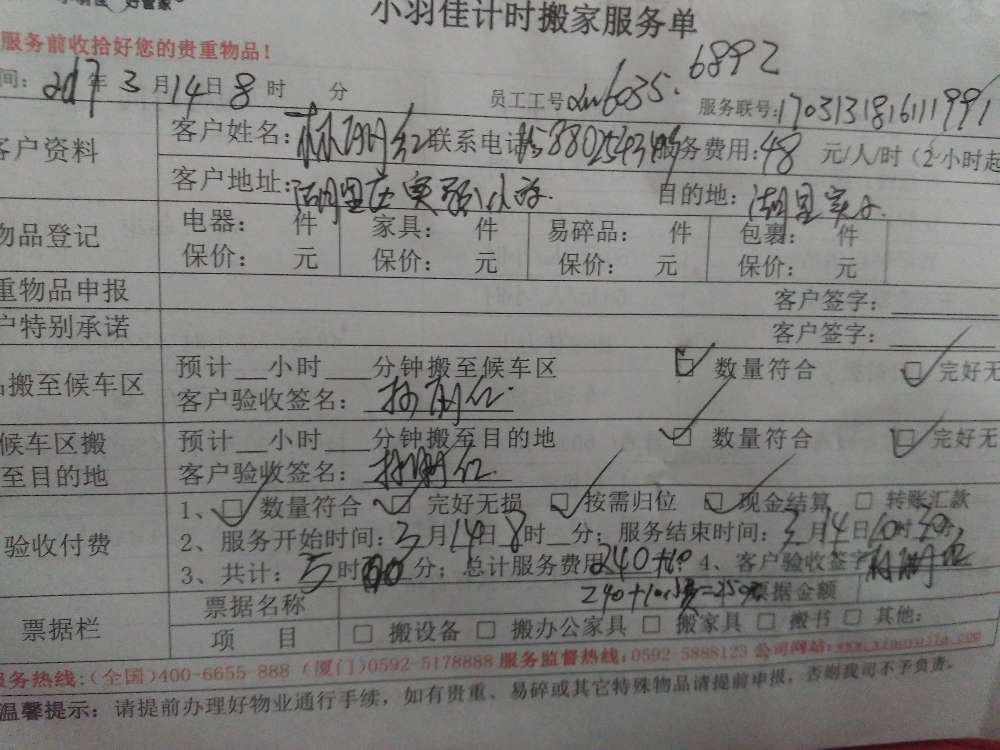 小羽佳 好管家
小羽佳计时搬家服务单
服务前收拾好您的贵重物品！
间：2017年3月14日8时 分 员工工号 6035. 6892 服务联号：170313181611991
客户资料 客户姓名： 联系电话： 服务费用：48元/人/时（2小时起
客户地址：湖里区实验小学. 目的地：湖里实小.
物品登记 电器： 件 家具： 件 易碎品： 件 包裹： 件
保价： 元 保价： 元 保价： 元 保价： 元
重物品申报 客户签字：
户特别承诺 客户签字：
品搬至候车区 预计__小时___分钟搬至候车区 数量符合 完好无
客户验收签名：
候车区搬至目的地 预计__小时___分钟搬至目的地 数量符合 完好无
客户验收签名：
验收付费 1、□数量符合 □ 完好无损 □ 按需归位 □ 现金结算 □ 转账汇款
2、服务开始时间：3月14日8时__分；服务结束时间：3月14日10时30分
3、共计：5时 分；总计服务费用240+10 4、客户验收签字
240+10 =250
票据栏 票据名称 票据金额
项 目 □ 搬设备 □ 搬办公家具 □ 搬家具 □ 搬书 □ 其他：
服务热线：（全国）400-6655-888（厦门）0592-5178888 服务监督热线：0592-5888123 公司网站：www.xiaoyujia.com
温馨提示：请提前办理好物业通行手续，如有贵重、易碎或其它特殊物品请提前申报，否则我司不予负责。